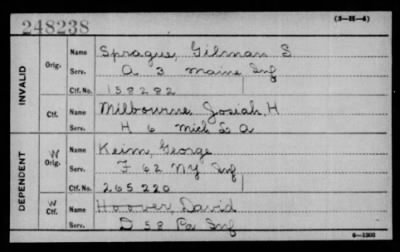 248238
(3-H-4)
INVALID
Orig.
Name Sprague, Gilman S
Serv. A 3 Maine Inf
Ctf. No. 158282
Ctf.
Name Milbourne, Josiah H
Serv. H 6 Mich S A
DEPENDENT
W
Orig.
Name Keim, George
Serv. F 62 NY Inf
Ctf. No. 265220
W
Ctf.
Name Hoover, David
Serv. D 58 Pa Inf